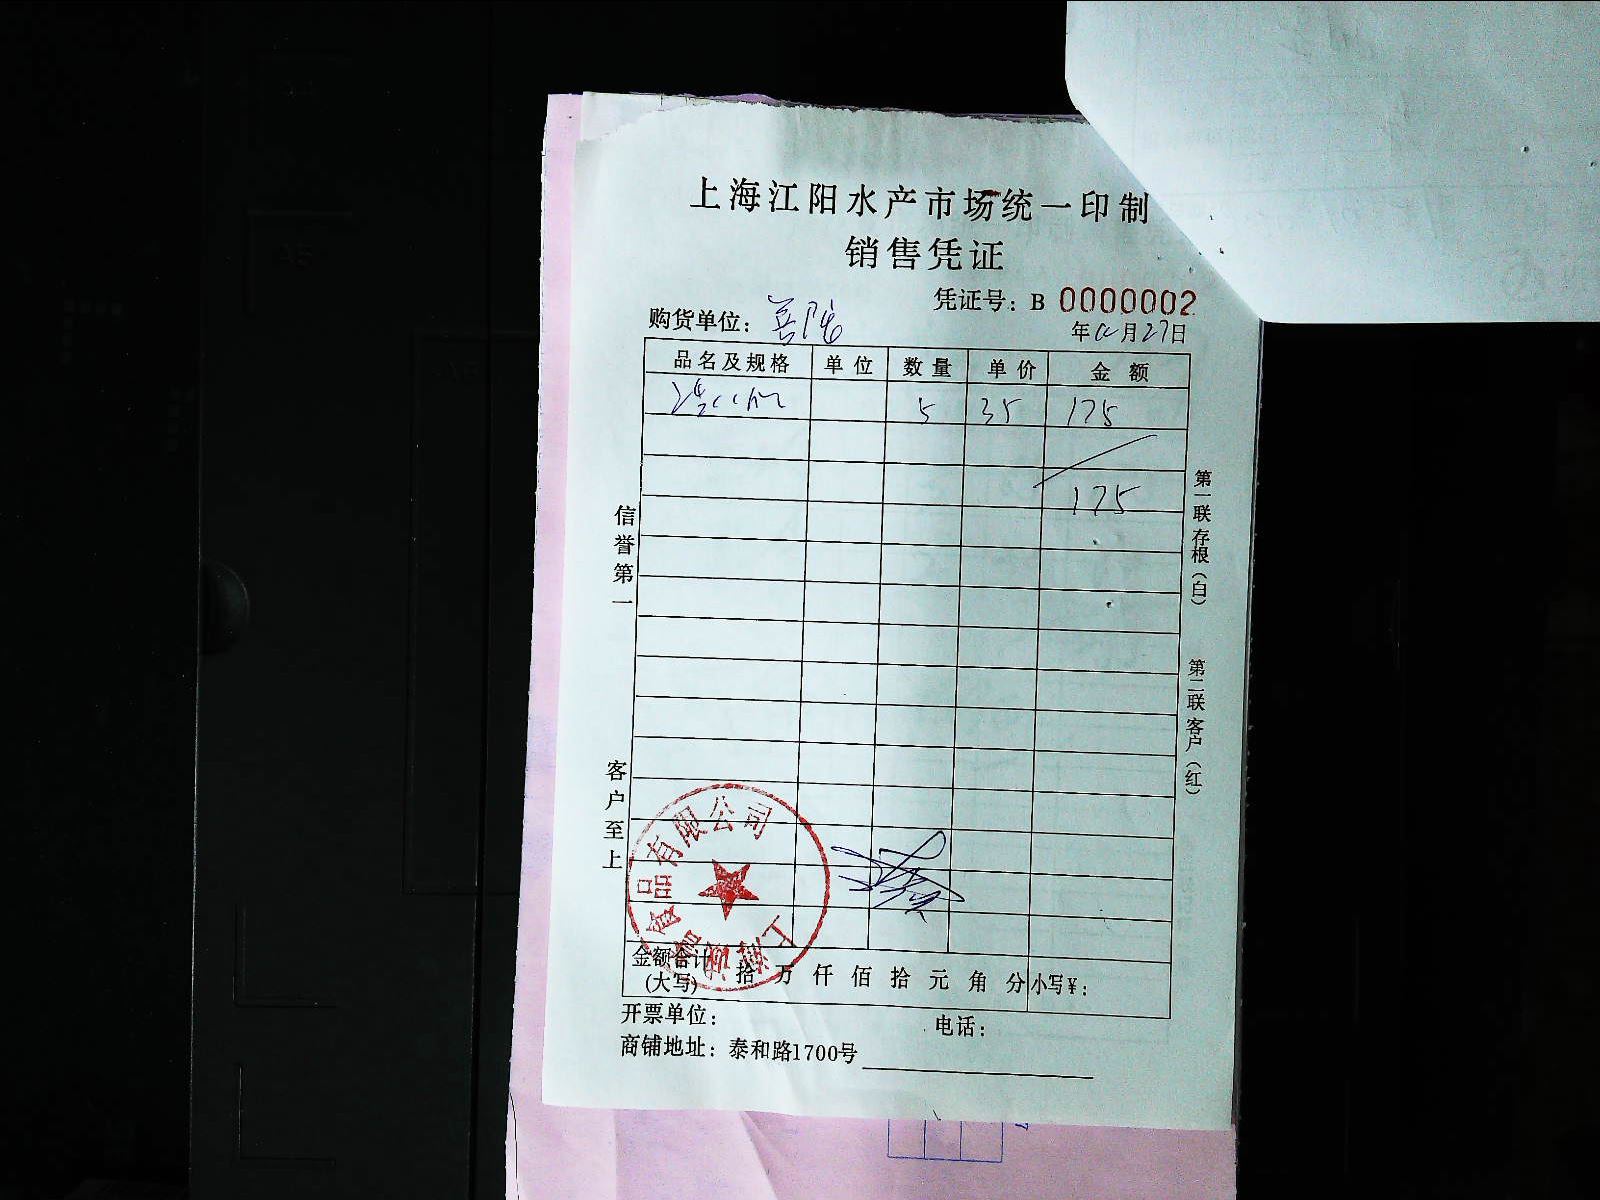 上海江阳水产市场统一印制
销售凭证
凭证号：B 0000002
购货单位：普陀
年12月27日
品名及规格 单位 数量 单价 金额
5 35 175
175
信誉第一
客户至上
第一联存根（白）
第二联客户（红）
上海 食品有限公司
金额合计（大写） 拾 万 仟 佰 拾 元 角 分 小写￥：
开票单位： 电话：
商铺地址：泰和路1700号